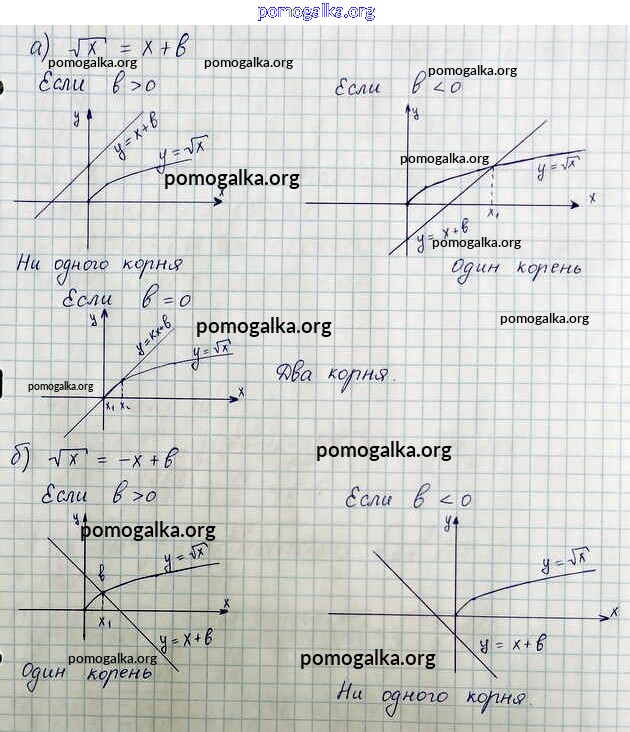 pomogalka.org
а) √x = x + b
pomogalka.org
pomogalka.org
pomogalka.org
Если b > 0
Если b < 0
y
y = x+b
y = √x
pomogalka.org
x
y
pomogalka.org
y = √x
x₁
x
y = x+b
pomogalka.org
Ни одного корня
Один корень
Если b = 0
y
y=kx+b
y = √x
pomogalka.org
pomogalka.org
pomogalka.org
x₁ x₂
x
Два корня.
б) √x = -x + b
pomogalka.org
Если b > 0
Если b < 0
y
pomogalka.org
b
y = √x
x₁
x
y = x+b
y
y = √x
x
y = x+b
pomogalka.org
pomogalka.org
Один корень
Ни одного корня.